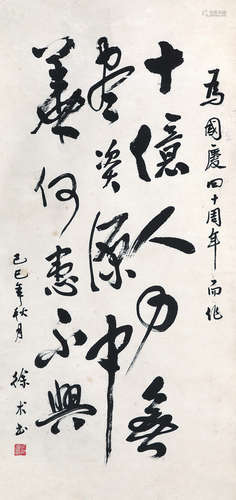 為國慶四十周年而作
十億人力無
盡資源中
華何患不興
己巳年秋月
徐术书